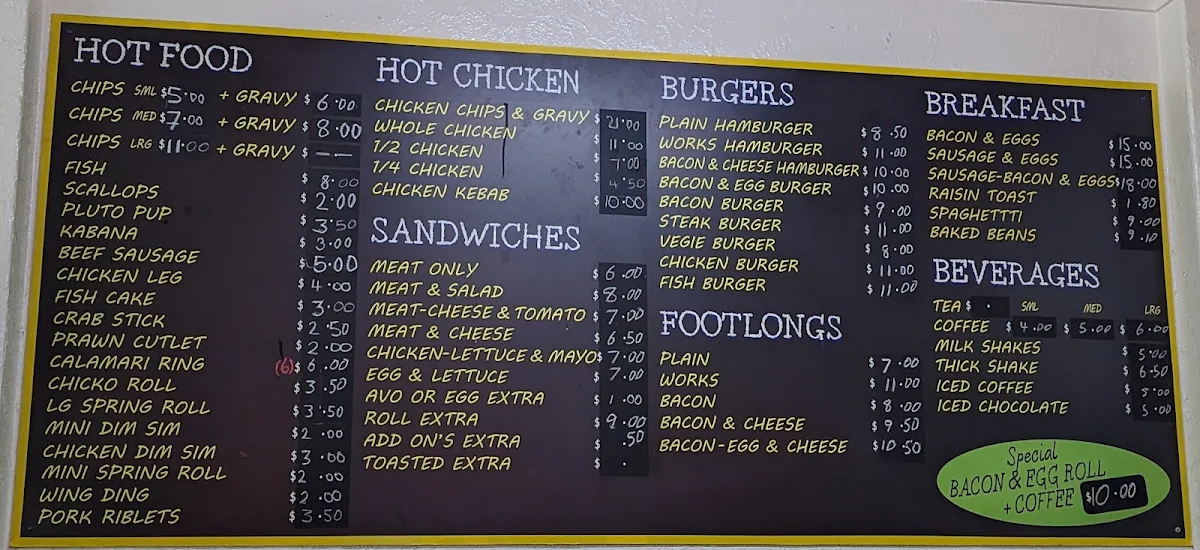 HOT FOOD
CHIPS SML $5.00 + GRAVY $6.00
CHIPS MED $7.00 + GRAVY $8.00
CHIPS LRG $11.00 + GRAVY $ --.--
FISH $8.00
SCALLOPS $2.00
PLUTO PUP $3.50
KABANA $3.00
BEEF SAUSAGE $5.00
CHICKEN LEG $4.00
FISH CAKE $3.00
CRAB STICK $2.50
PRAWN CUTLET $2.00
CALAMARI RING (6) $6.00
CHICKO ROLL $3.50
LG SPRING ROLL $3.50
MINI DIM SIM $2.00
CHICKEN DIM SIM $3.00
MINI SPRING ROLL $2.00
WING DING $2.00
PORK RIBLETS $3.50
HOT CHICKEN
CHICKEN CHIPS & GRAVY $21.00
WHOLE CHICKEN $11.00
1/2 CHICKEN $7.00
1/4 CHICKEN $4.50
CHICKEN KEBAB $10.00
SANDWICHES
MEAT ONLY $6.00
MEAT & SALAD $8.00
MEAT-CHEESE & TOMATO $7.00
MEAT & CHEESE $6.50
CHICKEN-LETTUCE & MAYO $7.00
EGG & LETTUCE $7.00
AVO OR EGG EXTRA $1.00
ROLL EXTRA $9.00
ADD ON'S EXTRA $.50
TOASTED EXTRA $ .
BURGERS
PLAIN HAMBURGER $8.50
WORKS HAMBURGER $11.00
BACON & CHEESE HAMBURGER $10.00
BACON & EGG BURGER $10.00
BACON BURGER $9.00
STEAK BURGER $11.00
VEGIE BURGER $8.00
CHICKEN BURGER $11.00
FISH BURGER $11.00
FOOTLONGS
PLAIN $7.00
WORKS $11.00
BACON $8.00
BACON & CHEESE $9.50
BACON-EGG & CHEESE $10.50
BREAKFAST
BACON & EGGS $15.00
SAUSAGE & EGGS $15.00
SAUSAGE-BACON & EGGS $18.00
RAISIN TOAST $1.80
SPAGHETTTI $9.00
BAKED BEANS $9.10
BEVERAGES
TEA $ . SML MED LRG
COFFEE $4.00 $5.00 $6.00
MILK SHAKES $5.00
THICK SHAKE $6.50
ICED COFFEE $5.00
ICED CHOCOLATE $5.00
Special
BACON & EGG ROLL
+ COFFEE $10.00